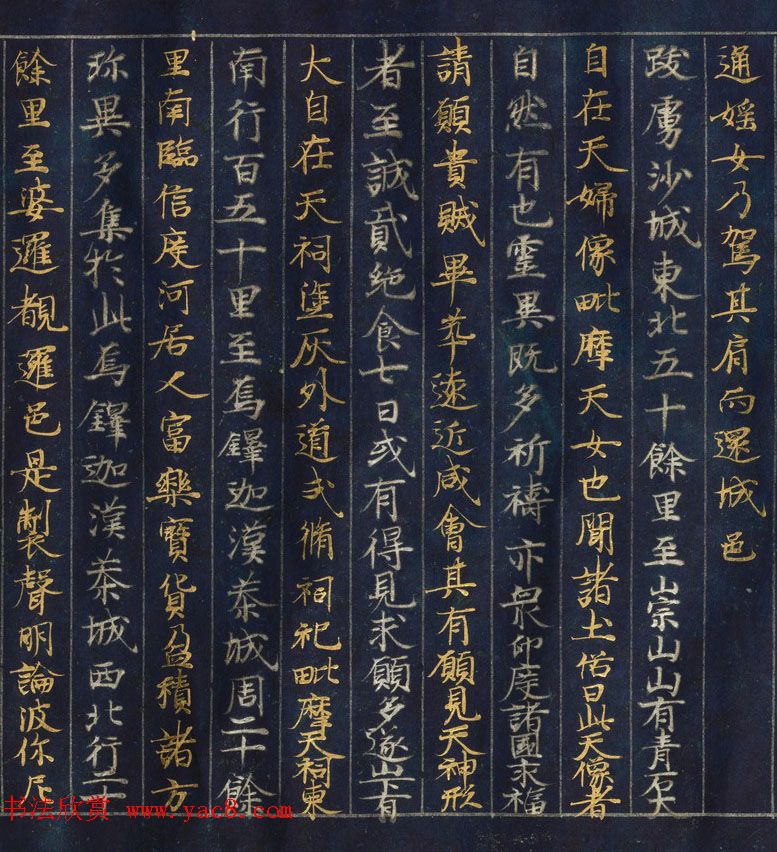 通婬女乃駕其肩而還城邑
跋虜沙城東北五十餘里至崇山山有青石大
自在天婦像毗摩天女也聞諸土俗曰此天像者
自然有也靈異既多祈禱亦衆印度諸國求福
請願貴賤畢萃遠近咸會其有願見天神形
者至誠貳絶食七日或有得見求願多遂山下有
大自在天祠塗灰外道式脩祠祀毗摩天祠東
南行百五十里至烏鐸迦漢荼城周二十餘
里南臨信度河居人富樂寶貨盈積諸方
珎異多集於此烏鐸迦漢荼城西北行二十
餘里至婆邏覩邏邑是製聲明論波你尼
书法欣赏 www.yac8.com